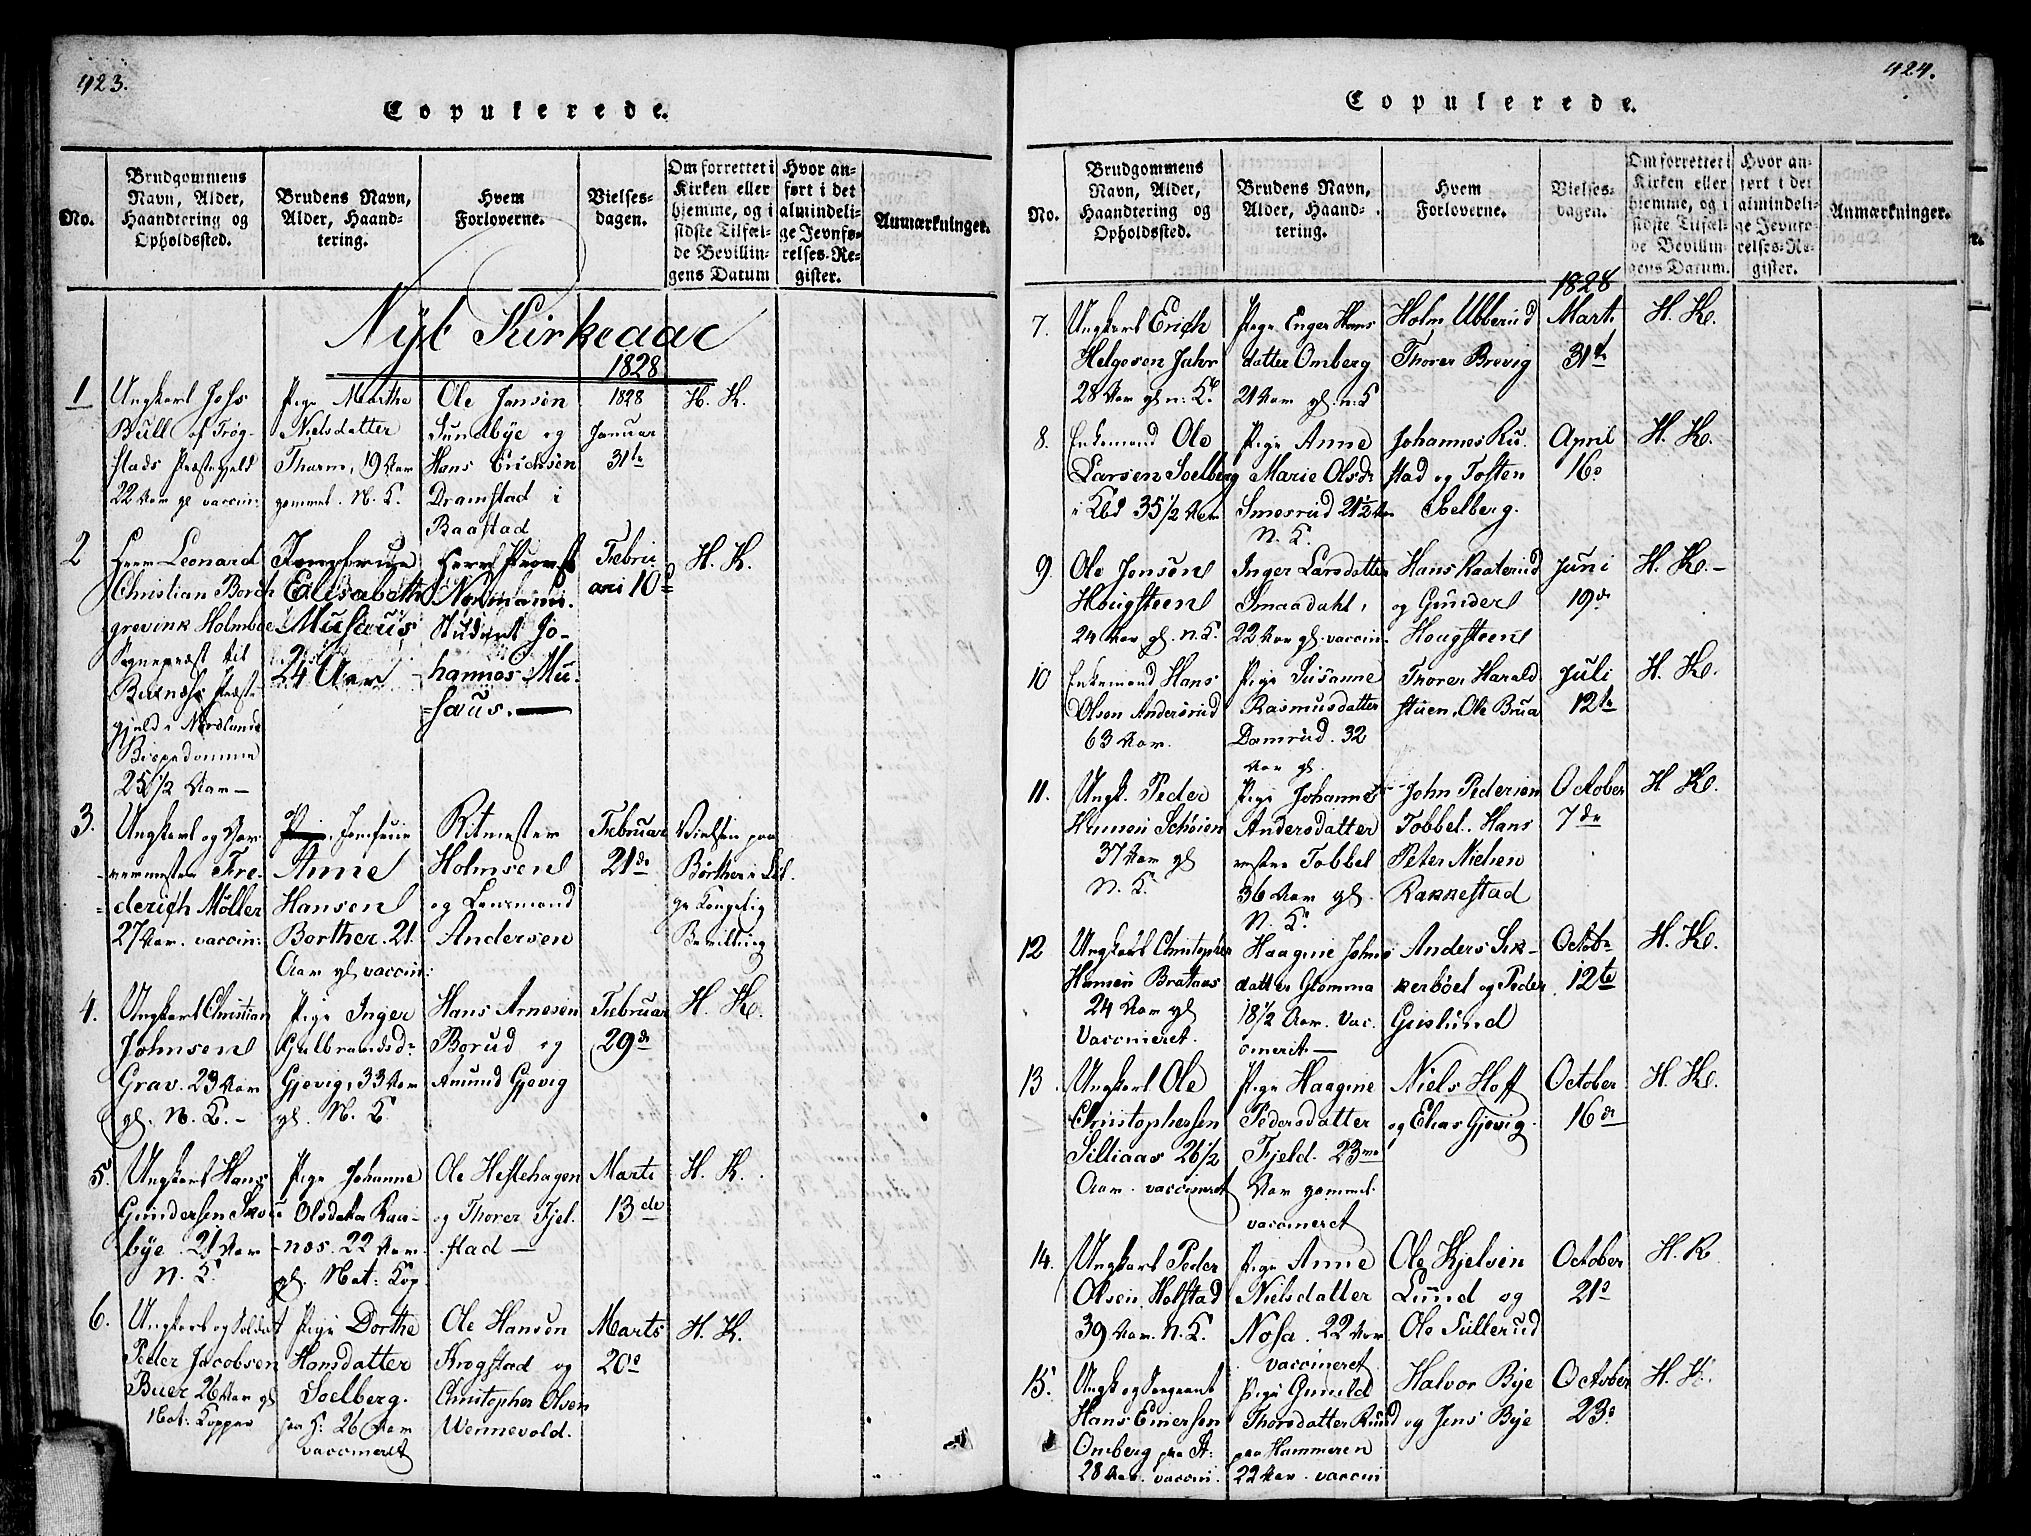 423.
Copulerede.
No.
Brudgommens Navn, Alder, Haandtering og Opholdssted.
Brudens Navn, Alder, Haandtering.
Hvem Forloverne.
Vielsesdagen.
Om forrettet i Kirken eller hjemme, og i sidste Tilfælde Bevillingens Datum
Hvor anført i det almindelige Jevnførelses-Register.
Anmærkninger.
Nyt Kirkeaar
1828
1
Ungkarl Johs
Bull af Trøg-
stads Præstegjeld
22 Aar gl vaccin:
Pige Marthe
Nielsdatter
19 Aar
gammel. N. K.
Ole Jansen
Sundbye og
Hans Erichsen
Dramstad i
Baastad
1828
Januar
31te
H. K.
2
Herr Leonard
Christian Borch
grevink Holmboe
Sognepræst til
Præste-
gjeld i Nordlands
Bispedømme
25 1/2 Aar
Jomfrue
Elisabeth
Musæus
24 Aar
Herr Provst
Normann.
Student Jo-
hannes Mu-
sæus.
Febru
ari 10de
H. K.
3.
Ungkarl og
Fre-
derich Møller
27 Aar. vaccin:
Jomfrue
Anne
Hansen
Børther. 21
Aar gl vaccin:
Ritmester
Holmsen
og Lensmand
Andersen
Februar
21de
Vielsen paa
Børther i
Kongelig
Bevilling
4.
Ungkarl Christian
Johnsen
Grav. 23 Aar
gl. N. K.
Pige Inger
Gulbrandsd:
Gjøvig, 33 Aar
gl. N. K
Hans Arnesen
Borud og
Amund Gjøvig
Februar
29de
H. K.
5.
Ungkarl Hans
Gundersen
bye. 21 Aar
N. K.
Pige Johanne
Olsdatter Raa-
næs. 22 Aar
gl. Nat: Kop
Ole Hestehagen
og Thorer Fjel-
stad
Marti
13de
H. K.
6.
Ungkarl og Soldat
Peder Jacobsen
Buer 26 Aar gl
Nat: Kopper
Pige Dorthe
Hansdatter
Soelberg.
26 Aar
vaccineret
Ole Hansen
Krogstad og
Christopher Olsen
Wennevold.
Marts
20de
H. K.
424.
Copulerede.
No.
Brudgommens Navn, Alder, Haandtering og Opholdssted.
Brudens Navn, Alder, Haandtering.
Hvem Forloverne.
Vielsesdagen.
Om forrettet i Kirken eller hjemme, og i sidste Tilfælde Bevillingens Datum.
Hvor anført i det almindelige Jevnførelses-Register.
Anmærkninger.
1828
7.
Ungkarl Erich
Helgesen Jahr
28 Aar gl n: K.
Pige Enger Hans
datter Omberg
21 Aar gl. n: K
Holm Ubberud
Thorer Brevig
Mart.
31te
H. K.
8.
Enkemand Ole
Larsen Soelberg
35 1/2 Aar
Pige Anne
Marie Olsd:
Smesrud 21 1/2 Aar
N. K.
Johannes Ru-
stad og Tosten
Soelberg.
April
16de
H. K.
9.
Ole Jonsen
Hougsteen
24 Aar gl. n. K.
Inger Larsdatter
Smaadahl,
22 Aar gl. vaccin.
Hans Raaterud
og Gunder
Hougsteen
Juni
19de
H. K.
10
Enkemand Hans
Olsen Andersrud
63 Aar.
Pige Susanne
Rasmusdatter
Damrud. 32
Aar gl.
Thorer Harald
stuen, Ole Brua
Juli
12te
H. K.
11.
Ungk. Peder
Hansen Schøien
37 Aar gl
N. K.
Pige Johanne
Andersdatter
Tobbel
36 Aar gl.
N. K.
John Pedersen
Tobbel. Hans
Peter Nielsen
Rakkestad
October
7de
H. K.
12
Ungkarl Christopher
Hansen Brataas
24 Aar gl
Vaccineret.
Haagine Johns
datter Glomma
18 1/2 Aar. Vac-
cineret
Anders Sik-
kerbøel og Peder
Gislund
Octob:
12te
H. K.
13.
Ungkarl Ole
Christophersen
Silliaas 26 1/2
Aar. vaccineret
Pige Haagine
Pedersdatter
Fjeld. 23
Aar gammel.
vaccineret
Niels Hoff
og Elias Gjøvig.
October
16de
H. K.
14.
Ungkarl Peder
Olsen Holstad
39 Aar. N. K.
Pige Anne
Nielsdatter
Nosa. 22 Aar
vaccineret
Ole Kjelsen
Lund og
Ole Sullerud
October
21de
H. K
15.
Ungk og Sergeant
Hans Einersen
Omberg
28 Aar. vaccin.
Pige Gunild
Thorsdatter Ruud
paa Hammeren
22 Aar. vaccin
Halvor Bye
og Jens Bye
October
23de
H. K.